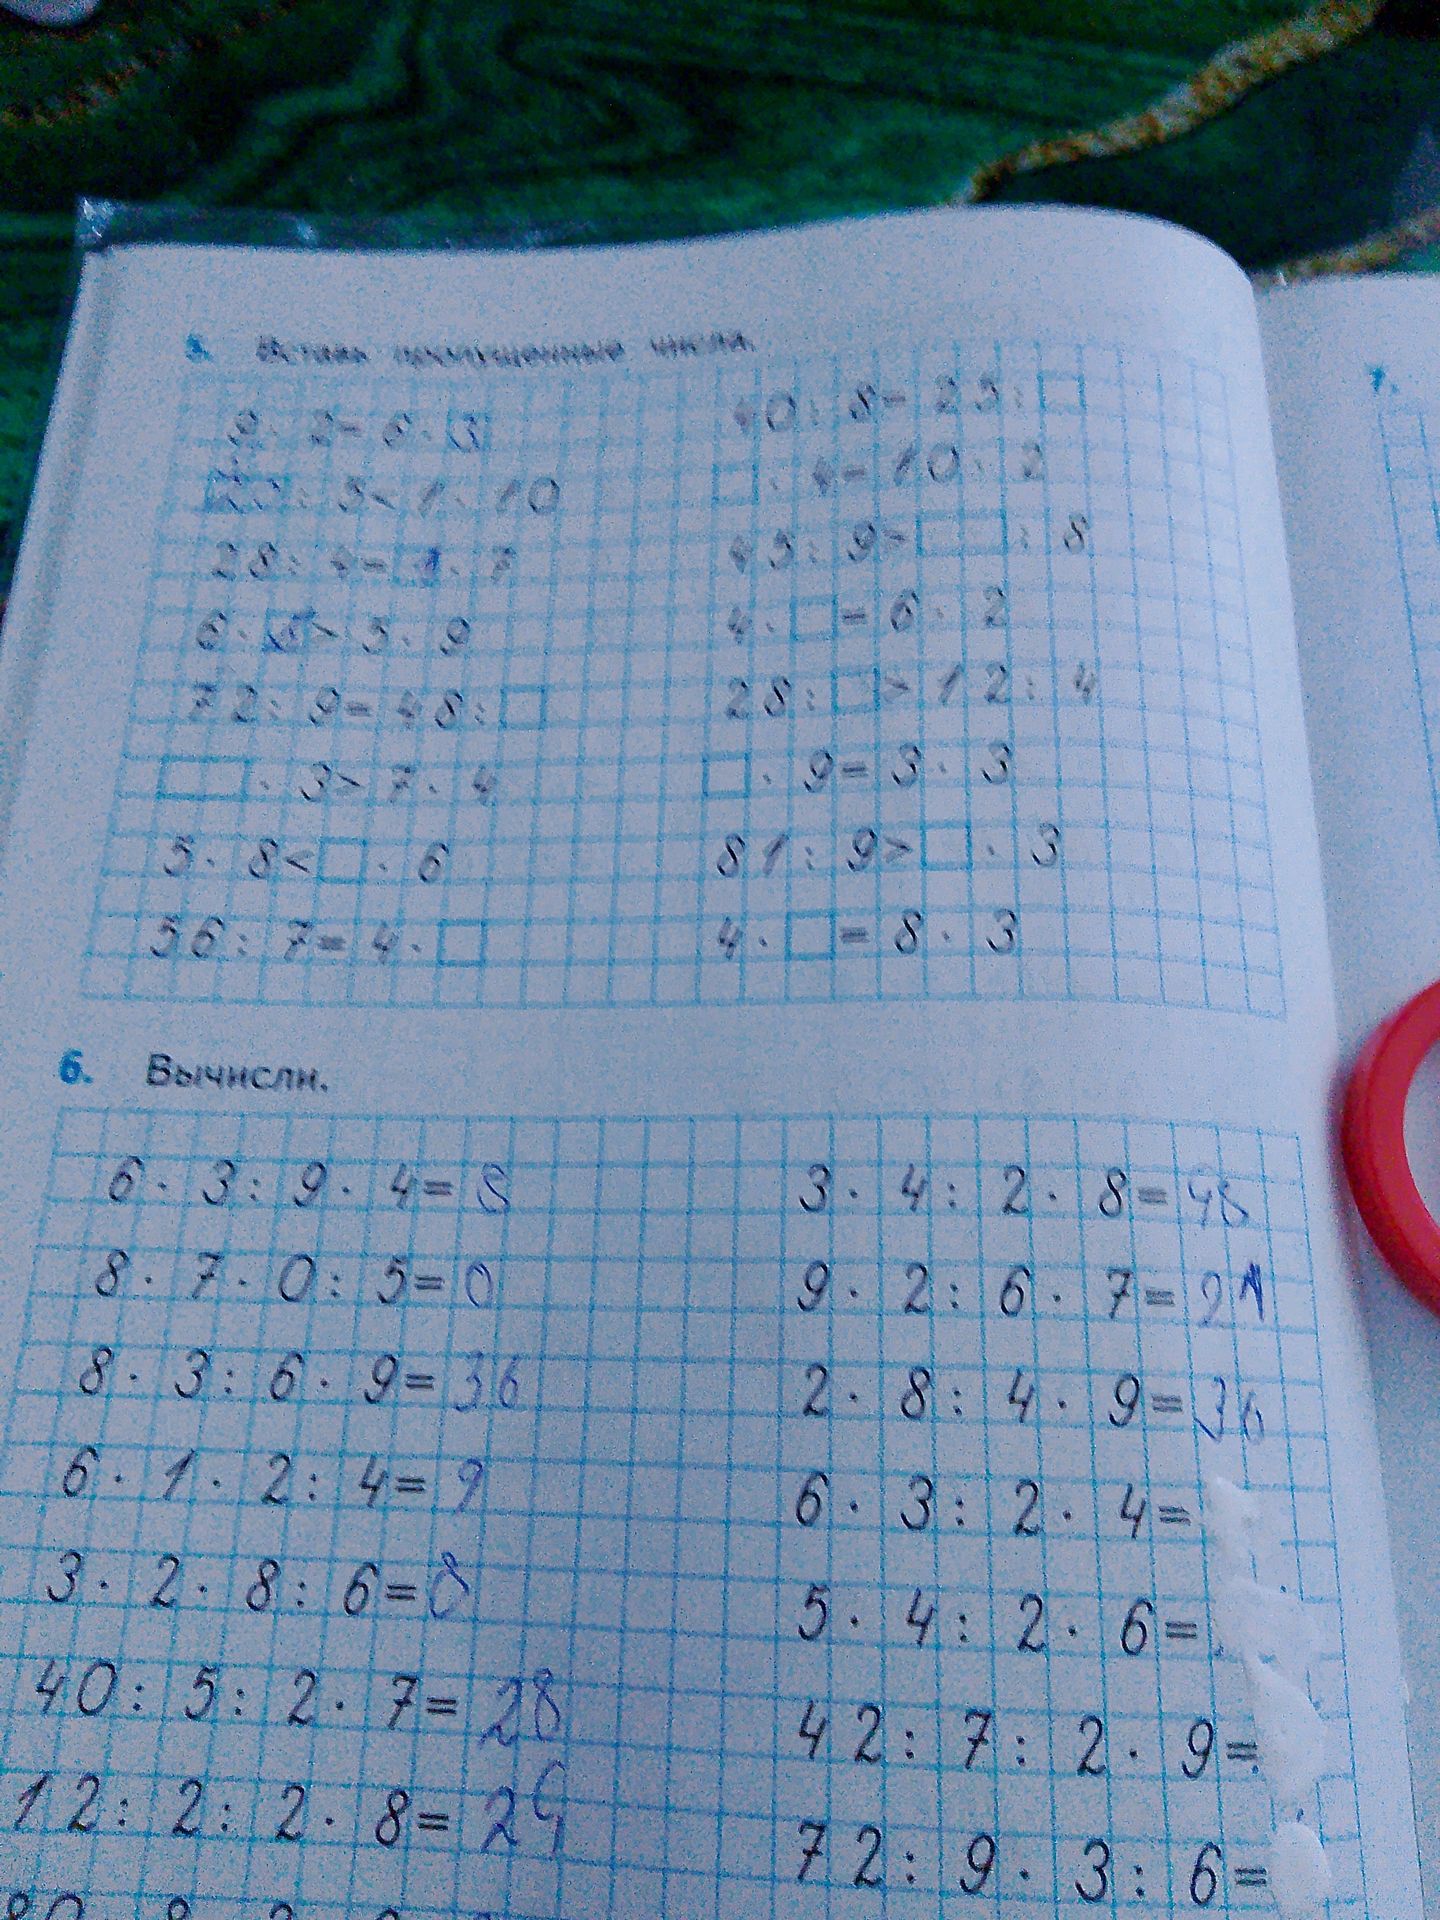 5. Вставь пропущенные числа.
9 · 2 = 6 · 3
: 3 < 1 · 10
28 : 4 = 1 · 7
6 · > 5 · 9
72 : 9 = 48 : □
□ · 3 > 7 · 4
5 · 8 < □ · 6
56 : 7 = 4 · □
40 : 8 = 25 : □
□ · 4 = 10 · 2
45 : 9 > □ : 8
4 · □ = 6 · 2
28 : □ > 12 : 4
□ · 9 = 3 · 3
81 : 9 > □ · 3
4 · □ = 8 · 3
6. Вычисли.
6 · 3 : 9 · 4 = 8
8 · 7 · 0 : 5 = 0
8 · 3 : 6 · 9 = 36
6 · 1 · 2 : 4 =
3 · 2 · 8 : 6 = 8
40 : 5 : 2 · 7 = 28
12 : 2 : 2 · 8 = 24
3 · 4 : 2 · 8 = 48
9 · 2 : 6 · 7 = 21
2 · 8 : 4 · 9 = 36
6 · 3 : 2 · 4 =
5 · 4 : 2 · 6 =
42 : 7 : 2 · 9 =
72 : 9 · 3 : 6 =
7.